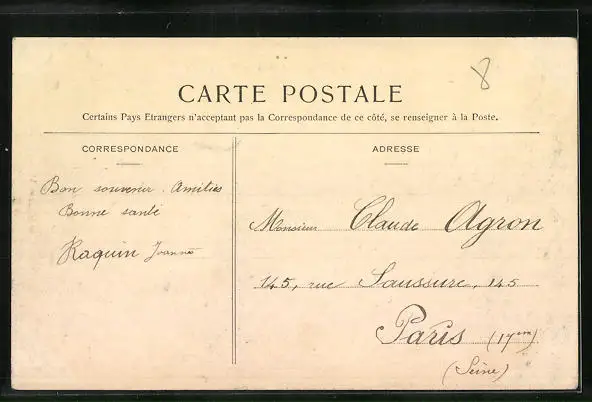 8
CARTE POSTALE
Certains Pays Etrangers n'acceptant pas la Correspondance de ce côté, se renseigner à la Poste.
CORRESPONDANCE
Bon souvenir. Amitiés
Bonne santé
Raquin Joannès
ADRESSE
Monsieur Claude Agron
145, rue Saussure, 145
Paris (17em)
(Seine)